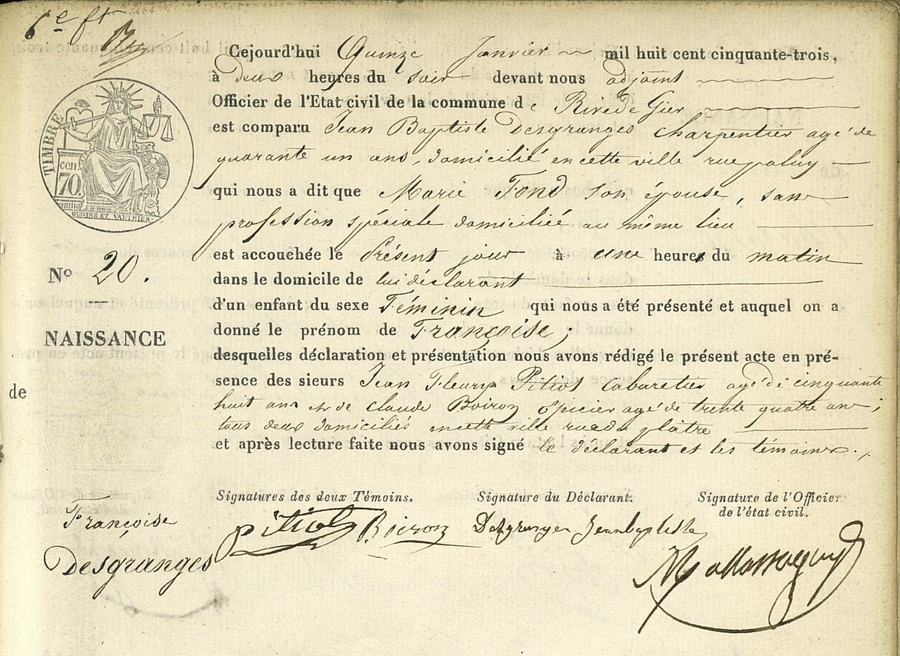 6e ft
Cejourd'hui Quinze Janvier mil huit cent cinquante-trois,
à deux heures du soir devant nous adjoint
Officier de l'Etat civil de la commune de Rive de Gier
est comparu Jean Baptiste Desgranges charpentier agé de
quarante un ans, domicilié en cette ville rue paluy
qui nous a dit que Marie Fond son épouse, sans
profession spéciale domiciliée au même lieu
est accouchée le Présent jour à une heure du matin
dans le domicile de lui déclarant
d'un enfant du sexe Féminin qui nous a été présenté et auquel on a
donné le prénom de Françoise;
desquelles déclaration et présentation nous avons rédigé le présent acte en pré-
sence des sieurs Jean Fleury Pitiot cabaretier agé de cinquante
huit ans et de Claude Boiron épicier agé de trente quatre ans;
tous deux domiciliés en cette ville rue du plâtre
et après lecture faite nous avons signé le déclarant et les témoins.
TIMBRE
cen
70
OUDINÉ ET VAUTHIER
No 20.
NAISSANCE
de
Françoise
Desgranges
Signatures des deux Témoins. Signature du Déclarant. Signature de l'Officier
de l'état civil.
Pitiot Boiron Desgranges Jean baptiste